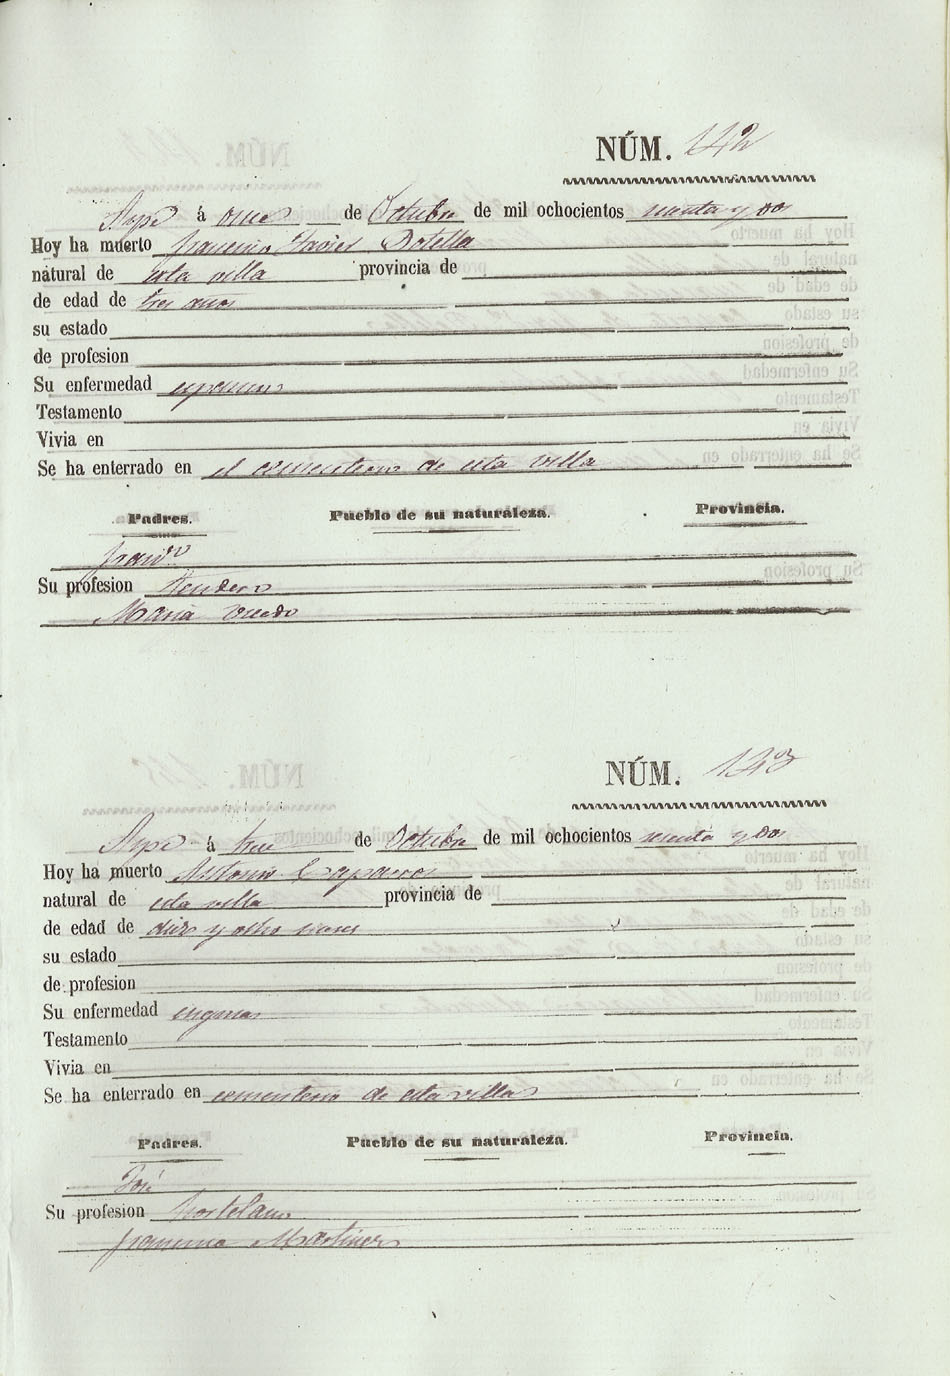 NÚM. 142
Aspe à once de Octubre de mil ochocientos sesenta y dos
Hoy ha muerto Francisco Javier Botella
natural de esta villa provincia de
de edad de tres años
su estado
de profesion
Su enfermedad
Testamento
Vivia en
Se ha enterrado en el cementerio de esta villa
Padres. Pueblo de su naturaleza. Provincia.
Franco
Su profesion tendero
Maria
NÚM. 143
Aspe à trece de Octubre de mil ochocientos sesenta y dos
Hoy ha muerto Antonio Caparros
natural de esta villa provincia de
de edad de diez y ocho meses
su estado
de profesion
Su enfermedad anginas
Testamento
Vivia en
Se ha enterrado en cementerio de esta villa
Padres. Pueblo de su naturaleza. Provincia.
José
Su profesion hortelano
Francisca Martinez